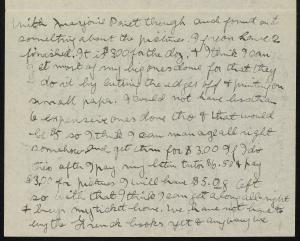 with Marjorie Duet through and found out
something about the pictures. If you have 2
finished. It is $3.00 for the doz, & I think I can
get most of my big ones done for that they
do it by cutting the edges off & printing on
small paper. I could not have less than
6 expensive ones done tho & that would
be $5 so I think I can manage all right
somehow and get them for $3.00 If I do
this after I pay my latin tutor $6.50 & pay
$3.00 for pictures I will have $5.08 left
so with that I think I can get along all right
& buy my ticket home. We have not have to
buy the French books yet & anyway we